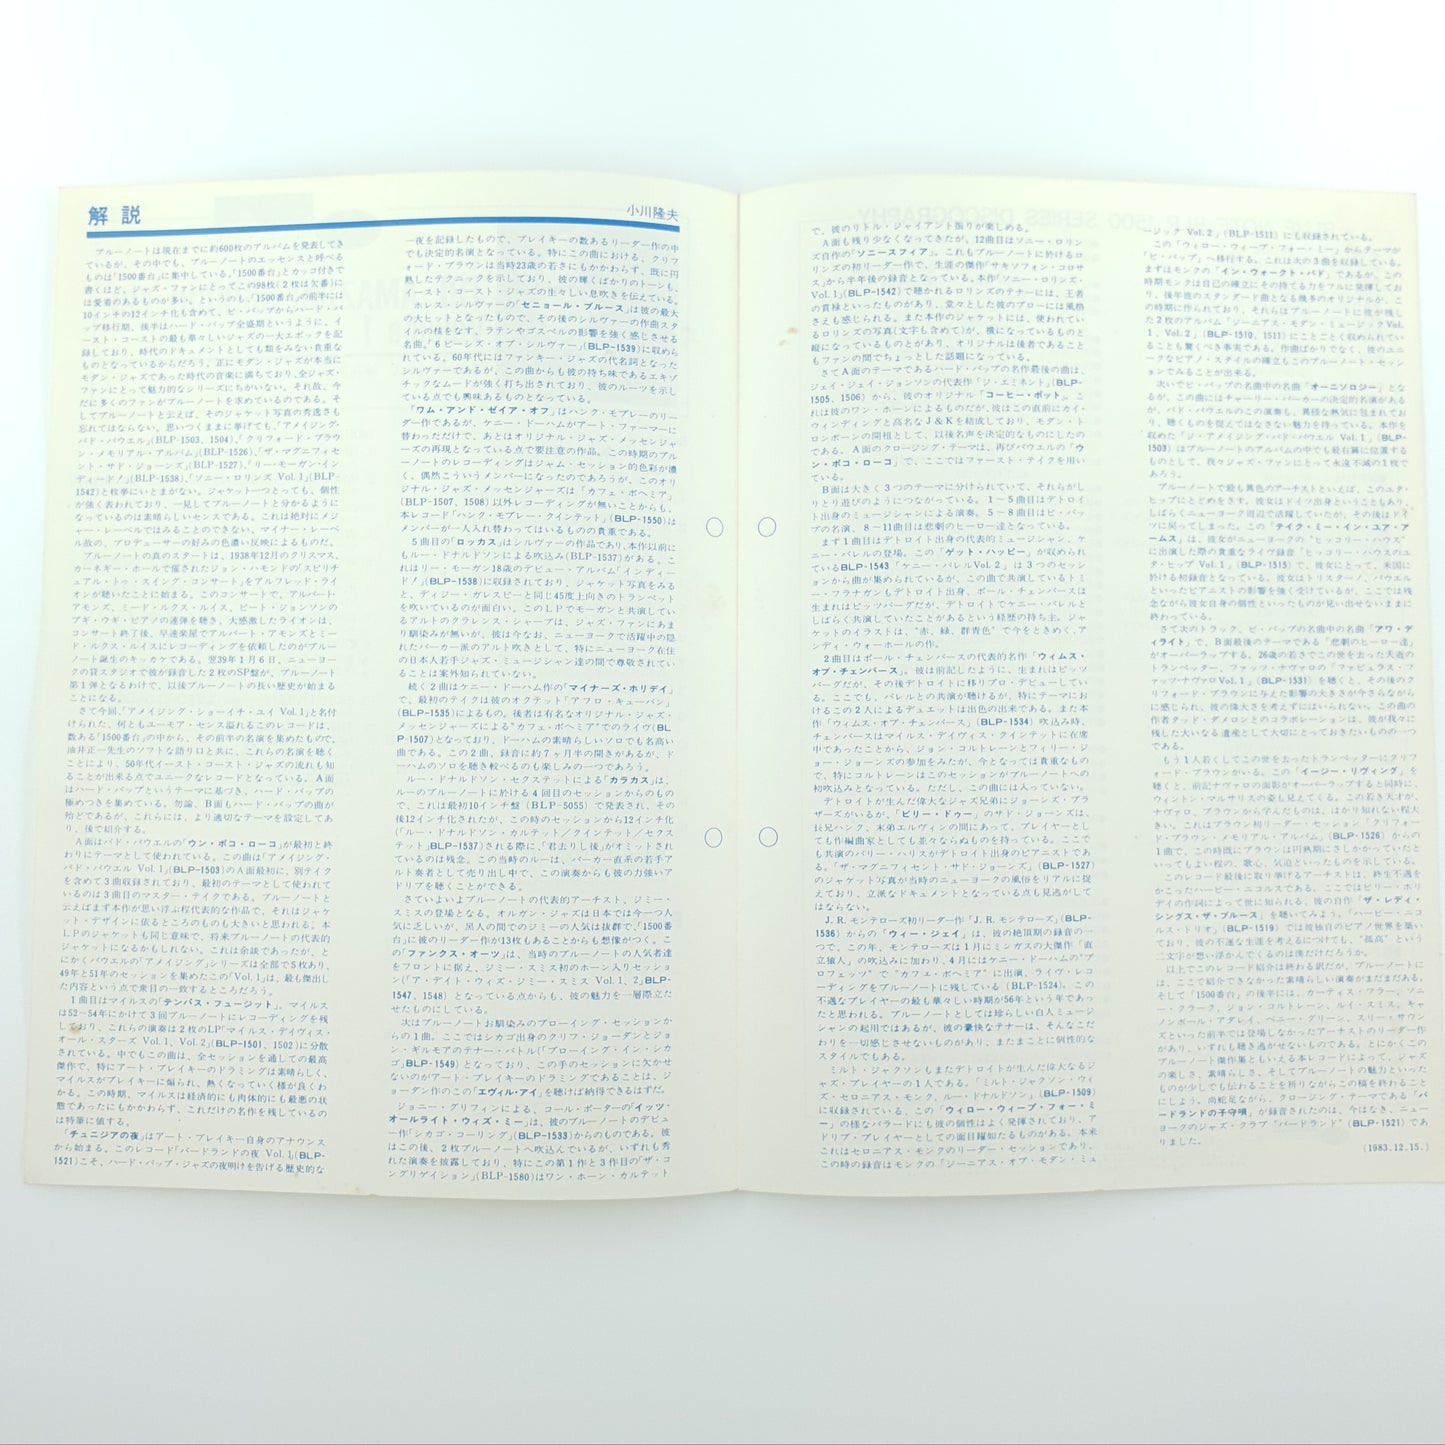 解 説
小川隆夫
ブルーノートは現在までに約600枚のアルバムを発表してき
ているが、その中でも、ブルーノートのエッセンスと呼べる
ものは「1500番台」に集中している。「1500番台」とカッコ付きで
書くほど、ジャズ・ファンにとってこの98枚(2枚は欠番)に
は愛着のあるものが多い。というのも、「1500番台」の前半には
10インチの12インチ化も含めて、ビ・バップからハード・バ
ップ移行期、後半はハード・バップ全盛期というように、イ
ースト・コーストの最も華々しいジャズの一大エポックを記
録しており、時代のドキュメントとしても類をみない貴重な
ものとなっているからだろう。正にモダン・ジャズが本当に
モダン・ジャズであった時代の音楽に満ちており、全ジャズ・
ファンにとって魅力的なシリーズにちがいない。それ故、今
だに多くのファンがブルーノートを求めているのである。そ
してブルーノートと云えば、そのジャケット写真の秀逸さも
忘れてはならない。思いつくままに挙げても、「アメイジング・
バド・パウエル」(BLP-1503、1504)、「クリフォード・ブラウ
ン・メモリアル・アルバム」(BLP-1526)、「ザ・マグニフィセ
ント・サド・ジョーンズ」(BLP-1527)、「リー・モーガン・イン
ディード!」(BLP-1538)、「ソニー・ロリンズ Vol.1」(BLP-
1542)と枚挙にいとまがない。ジャケット一つとっても、個性
が強く表われており、一見してブルーノートと分かるように
なっているのは素晴らしいセンスである。これは絶対にメジ
ャー・レーベルではみることのできない、マイナー・レーベ
ル故の、プロデューサーの好みの色濃い反映によるものだ。
ブルーノートの真のスタートは、1938年12月のクリスマス、
カーネギー・ホールで催されたジョン・ハモンドの「スピリチ
ュアル・トゥ・スイング・コンサート」をアルフレッド・ライ
オンが聴いたことに始まる。このコンサートで、アルバート・
アモンズ、ミード・ルクス・ルイス、ピート・ジョンソンのブ
ギ・ウギ・ピアノの連弾を聴き、大感激したライオンは、
コンサート終了後、早速楽屋でアルバート・アモンズとミー
ド・ルクス・ルイスにレコーディングを依頼したのがブルー
ノート誕生のキッカケである。翌39年1月6日、ニューヨー
クの貸スタジオで彼が録音した2枚のSP盤が、ブルーノート
第1弾となるわけで、以後ブルーノートの長い歴史が始まる
ことになる。
さて今回、「アメイジング・ショーイチ・ユイ Vol.1」と名付
けられた、何ともユーモア・センス溢れるこのレコードは、
数ある「1500番台」の中から、その前半の名演を集めたもので、
油井正一先生のソフトな語り口と共に、これらの名演を聴く
ことにより、50年代イースト・コースト・ジャズの流れも知
ることが出来る点でユニークなレコードとなっている。A面
はハード・バップというテーマに基づき、ハード・バップの
極めつきを集めている。勿論、B面もハード・バップの曲が
殆どであるが、これらには、より適切なテーマを設定してあ
り、後で紹介する。
A面はバド・パウエルの「ウン・ポコ・ローコ」が最初と終
わりにテーマとして使われている。この曲は「アメイジング・
バド・パウエル Vol.1」(BLP-1503)のA面最初に、別テイク
を含めて3曲収録されており、最初のテーマとして使われて
いるのは3曲目のマスター・テイクである。ブルーノートと
云えばまず本作が思い浮ぶ程代表的な作品で、それはジャケ
ット・デザインに依るところのものも大きいと思われる。本
LPのジャケットも同じ意味で、将来ブルーノートの代表的
ジャケットになるかもしれない。これは余談であったが、と
にかくパウエルの「アメイジング」シリーズは全部で5枚あり、
49年と51年のセッションを集めたこの「Vol.1」は、最も傑出し
た内容という点で衆目の一致するところだろう。
1曲目はマイルスの「テンパス・フュージット」。マイルス
は52~54年にかけて3回ブルーノートにレコーディングを残
しており、これらの演奏は2枚のLP「マイルス・デイヴィス・
オール・スターズ Vol.1、Vol.2」(BLP-1501、1502)に分散
されている。中でもこの曲は、全セッションを通しての最高
傑作で、特にアート・ブレイキーのドラミングは素晴らしく、
マイルスがブレイキーに煽られ、熱くなっていく様が良くわ
かる。この時期、マイルスは経済的にも肉体的にも最悪の状
態であったにもかかわらず、これだけの名作を残しているの
は特筆に値する。
「チュニジアの夜」はアート・ブレイキー自身のアナウンス
から始まる。このレコード「バードランドの夜 Vol.1」(BLP-
1521)こそ、ハード・バップ・ジャズの夜明けを告げる歴史的な
一夜を記録したもので、ブレイキーの数あるリーダー作の中
でも決定的名演となっている。特にこの曲における、クリフ
ォード・ブラウンは当時23歳の若さにもかかわらず、既に円
熟したテクニックを示しており、彼の輝くばかりのトーンも、
イースト・コースト・ジャズの生々しい息吹きを伝えている。
ホレス・シルヴァーの「セニョール・ブルース」は彼の最大
の大ヒットとなったもので、その後のシルヴァーの作曲スタ
イルの核をなす、ラテンやゴスペルの影響を強く感じさせる
名曲。「6ピーシズ・オブ・シルヴァー」(BLP-1539)に収めら
れている。60年代にはファンキー・ジャズの代名詞となった
シルヴァーであるが、この曲からも彼の持ち味であるエキゾ
チックなムードが強く打ち出されており、彼のルーツを示し
ている点でも興味あるものとなっている。
「ワム・アンド・ゼイア・オフ」はハンク・モブレーのリー
ダー作であるが、ケニー・ドーハムがアート・ファーマーに
替わっただけで、あとはオリジナル・ジャズ・メッセンジャ
ーズの再現となっている点で要注意の作品。この時期のブル
ーノートのレコーディングはジャム・セッション的色彩が濃
く、偶然こういうメンバーになったのであろうが、このオリ
ジナル・ジャズ・メッセンジャーズは「カフェ・ボヘミア」
(BLP-1507、1508)以外レコーディングが無いことからも、
本レコード「ハンク・モブレー・クインテット」(BLP-1550)は
メンバーが一人入れ替わってはいるものの貴重である。
5曲目の「ロッカス」はシルヴァーの作品であり、本作以前に
もルー・ドナルドソンによる吹込み(BLP-1537)がある。こ
れはリー・モーガン18歳のデビュー・アルバム「インディー
ド!」(BLP-1538)に収録されており、ジャケット写真をみる
と、ディジー・ガレスピーと同じ45度上向きのトランペット
を吹いているのが面白い。このLPでモーガンと共演してい
るアルトのクラレンス・シャープは、ジャズ・ファンにあま
り馴染みが無いが、彼は今なお、ニューヨークで活躍中の隠
れたパーカー派のアルト吹きとして、特にニューヨーク在住
の日本人若手ジャズ・ミュージシャン達の間で尊敬されてい
ることは案外知られていない。
続く2曲はケニー・ドーハム作の「マイナーズ・ホリデイ」
で、最初のテイクは彼のオクテット「アフロ・キューバン」
(BLP-1535)によるもの。後者は有名なオリジナル・ジャズ・
メッセンジャーズによる"カフェ・ボヘミア"でのライヴ(BL
P-1507)となっており、ドーハムの素晴らしいソロでも名高い
曲である。この2曲、録音に約7ヶ月半の開きがあるが、ド
ーハムのソロを聴き較べるのも楽しみの一つであろう。
ルー・ドナルドソン・セクステットによる「カラカス」は、
ルーのブルーノートに於ける4回目のセッションからのもの
で、これは最初10インチ盤(BLP-5055)で発表され、その
後12インチ化されたが、この時のセッションから12インチ化
(「ルー・ドナルドソン・カルテット/クインテット/セクス
テット」BLP-1537)される際に、「君去りし後」がオミットされ
ているのは残念。この当時のルーは、パーカー直系の若手ア
ルト奏者として売り出し中で、この演奏からも彼の力強いア
ドリブを聴くことができる。
さていよいよブルーノートの代表的アーチスト、ジミー・
スミスの登場となる。オルガン・ジャズは日本では今一つ人
気に乏しいが、黒人の間でのジミーの人気は抜群で、「1500番
台」に彼のリーダー作が13枚もあることからも想像がつく。こ
の「ファンクス・オーツ」は、当時のブルーノートの人気者達
をフロントに据え、ジミー・スミス初のホーン入りセッショ
ン(「ア・デイト・ウィズ・ジミー・スミス Vol.1、2」BLP-
1547、1548)となっている点からも、彼の魅力を一層際立た
せたものにしている。
次はブルーノートお馴染みのブローイング・セッションか
らの1曲。ここではシカゴ出身のクリフ・ジョーダンとジョ
ン・ギルモアのテナー・バトル(「ブローイング・イン・シカ
ゴ」BLP-1549)となっており、この手のセッションに欠かせ
ないのがアート・ブレイキーのドラミングであることは、ジ
ョーダン作のこの「エヴィル・アイ」を聴けば納得できるはずだ。
ジョニー・グリフィンによる、コール・ポーターの「イッツ・
オールライト・ウィズ・ミー」は、彼のブルーノートのデビュ
ー作「シカゴ・コーリング」(BLP-1533)からのものである。彼
はこの後、2枚ブルーノートへ吹込んでいるが、いずれも秀
れた演奏を披露しており、特にこの第1作と3作目の「ザ・コ
ングリゲイション」(BLP-1580)はワン・ホーン・カルテット
で、彼のリトル・ジャイアント振りが楽しめる。
A面も残り少なくなってきたが、12曲目はソニー・ロリン
ズ自作の「ソニースフィア」。これもブルーノートに於けるロ
リンズの初リーダー作で、生涯の傑作「サキソフォン・コロサ
ス」から半年後の録音となっている。本作「ソニー・ロリンズ・
Vol.1」(BLP-1542)で聴かれるロリンズのテナーには、王者
の貫禄といったものがあり、堂々とした彼のブローには風格
さえも感じられる。また本作のジャケットには、使われてい
るロリンズの写真(文字も含めて)が、横になっているものと
縦になっているものとがあり、オリジナルは後者であること
もファンの間でちょっとした話題になっている。
さてA面のテーマであるハード・バップの名作最後の曲は、
ジェイ・ジェイ・ジョンソンの代表作「ジ・エミネント」(BLP-
1505、1506)から、彼のオリジナル「コーヒー・ポット」。こ
れは彼のワン・ホーンによるものだが、彼はこの直前にカイ・
ウィンディングと高名なJ&Kを結成しており、モダン・ト
ロンボーンの開祖として、以後名声を決定的なものにしたの
である。A面のクロージング・テーマは、再びパウエルの「ウ
ン・ポコ・ローコ」で、ここではファースト・テイクを用い
ている。
B面は大きく3つのテーマに分けられていて、それらがし
りとり遊びのようにつながっている。1~5曲目はデトロイ
ト出身のミュージシャンによる演奏。5~8曲目はビ・バッ
プの名演、8~11曲目は悲劇のヒーロー達となっている。
まず1曲目はデトロイト出身の代表的ミュージシャン、ケ
ニー・バレルの登場。この「ゲット・ハッピー」が収められ
ているBLP-1543「ケニー・バレル Vol.2」は3つのセッシ
ョンから曲が集められているが、この曲で共演しているトミ
ー・フラナガンもデトロイト出身、ポール・チェンバースは
生まれはピッツバーグだが、デトロイトでケニー・バレルと
しばらく共演していたことがあるという経歴の持ち主。ジャ
ケットのイラストは、"赤、緑、群青色"で今をときめく、ア
ンディ・ウォーホールの作。
2曲目はポール・チェンバースの代表的名作「ウィムス・
オブ・チェンバース」。彼は前記したように、生まれはピッツ
バーグだが、その後デトロイトに移りプロ・デビューしてい
る。ここでも、バレルとの共演が聴けるが、特にテーマにお
けるこの2人によるデュエットは出色の出来である。また本
作「ウィムス・オブ・チェンバース」(BLP-1534)吹込み時、
チェンバースはマイルス・デイヴィス・クインテットに在席
中であったことから、ジョン・コルトレーンとフィリー・ジ
ョー・ジョーンズの参加をみたが、今となっては貴重なもの
で、特にコルトレーンはこのセッションがブルーノートへの
初吹込みとなっている。ただし、この曲には入っていない。
デトロイトが生んだ偉大なジャズ兄弟にジョーンズ・ブラ
ザーズがいるが、「ビリー・ドゥー」のサド・ジョーンズは、
長兄ハンク、末弟エルヴィンの間にあって、プレイヤーとし
ても作編曲家としても並々ならぬものを持っている。ここで
も共演のバリー・ハリスがデトロイト出身のピアニストであ
る。「ザ・マグニフィセント・サド・ジョーンズ」(BLP-1527)
のジャケット写真が当時のニューヨークの風俗をリアルに捉
えており、立派なドキュメントとなっている点も見逃がして
はならない。
J.R.モンテローズ初リーダー作「J.R.モンテローズ」(BLP-
1536)からの「ウィー・ジェイ」は、彼の絶頂期の録音の一
つで、この年、モンテローズは1月にミンガスの大傑作「直
立猿人」の吹込みに加わり、4月にはケニー・ドーハムの"プ
ロフェッツ"で"カフェ・ボヘミア"に出演、ライヴ・レコ
ーディングをブルーノートに残している(BLP-1524)。この
不遇なプレイヤーの最も華々しい時期が56年という年であっ
たと思われる。ブルーノートとしては珍らしい白人ミュージ
シャンの起用ではあるが、彼の豪快なテナーは、そんなこだ
わりを一切感じさせないものがあり、またまことに個性的な
スタイルでもある。
ミルト・ジャクソンもまたデトロイトが生んだ偉大なるジ
ャズ・プレイヤーの1人である。「ミルト・ジャクソン・ウィ
ズ・セロニアス・モンク、ルー・ドナルドソン」(BLP-1509)
に収録されている、この「ウィロー・ウィープ・フォー・ミ
ー」の様なバラードにも彼の個性はよく発揮されており、ア
ドリブ・プレイヤーとしての面目躍如たるものがある。本来
これはセロニアス・モンクのリーダー・セッションであり、
この時の録音はモンクの「ジーニアス・オブ・モダン・ミュ
ージック Vol.2」(BLP-1511)にも収録されている。
この「ウィロー・ウィープ・フォー・ミー」からテーマが
「ビ・バップ」へ移行する。これは次の3曲を収録している。
まずはモンクの「イン・ウォークト・バド」であるが、この
時期モンクは自己の確立にその持てる力をフルに発揮してお
り、後年彼のスタンダード曲となる幾多のオリジナルが、こ
の時期に作られており、それらはブルーノートに彼が残し
た2枚のアルバム「ジーニアス・モダン・ミュージック Vol.
1、Vol.2」(BLP-1510、1511)にことごとく収められてい
ることも驚くべき事実である。作曲ばかりでなく、彼のユニ
ークなピアノ・スタイルの確立もこのブルーノート・セッシ
ョンでみることが出来る。
次いでビ・バップの名曲中の名曲「オーニソロジー」とな
るが、この曲にはチャーリー・パーカーの決定的名演がある
が、バド・パウエルのこの演奏も、異様な熱気に包まれてお
り、聴くものを捉えてはなさない魅力を持っている。本作を
収めた「ジ・アメイジング・バド・パウエル Vol.1」(BLP-
1503)はブルーノートのアルバムの中でも最右翼に位置する
ものとして、我々ジャズ・ファンにとって永遠不滅の1枚であ
ろう。
ブルーノートで最も異色のアーチストといえば、このユタ・
ヒップにとどめをさす。彼女はドイツ出身ということもあり、
しばらくニューヨーク周辺で活躍していたが、その後はドイ
ツに戻ってしまった。この「テイク・ミー・イン・ユア・ア
ームス」は、彼女がニューヨークの"ヒッコリー・ハウス"
に出演した際の貴重なライヴ録音「ヒッコリー・ハウスのユ
タ・ヒップ Vol.1」(BLP-1515)で、彼女にとって、米国に
於ける初録音となっている。彼女はトリスターノ、パウエル
といったピアニストの影響を強く受けているが、ここでは残
念ながら彼女自身の個性といったものが見い出せないままに
終わっている。
さて次のトラック、ビ・バップの名曲中の名曲「アワ・デ
ィライト」で、B面最後のテーマである「悲劇のヒーロー達」
がオーバーラップする。26歳の若さでこの世を去った天逝の
トランペッター、ファッツ・ナヴァロの「ファビュラス・フ
ァッツ・ナヴァロ Vol.1」(BLP-1531)を聴くと、その後のク
リフォード・ブラウンに与えた影響の大きさが今さらながら
に感じられ、彼の偉大さを考えずにはいられない。この曲の
作者タッド・ダメロンとのコラボレーションは、彼が我々に
残した大いなる遺産として大切にとっておきたいものの一つ
である。
もう1人若くしてこの世を去ったトランペッターにクリフ
ォード・ブラウンがいる。この「イージー・リヴィング」を
聴くと、前記ナヴァロの面影がオーバーラップすると同時に、
ウィントン・マルサリスの姿も見えてくる。この若き天才が、
ナヴァロ、ブラウンから学んだものは、はかり知れない程大
きい。これはブラウン初リーダー・セッション「クリフォー
ド・ブラウン・メモリアル・アルバム」(BLP-1526)からの
1曲で、この時既にブラウンは円熟期にさしかかっていたと
いってもよい程の、歌心、気迫といったものを示している。
このレコード最後に取り挙げるアーチストは、終生不遇を
かこったハービー・ニコルスである。ここではビリー・ホリ
デイの作詞によって世に知られる、彼の自作「ザ・レディ・
シングス・ザ・ブルース」を聴いてみよう。「ハービー・ニコ
ルス・トリオ」(BLP-1519)では彼独自のピアノ世界を築い
ており、彼の不運な生涯を考えるにつけても、"孤高"という
二文字が思い浮かんでくるのは僕だけだろうか。
以上でこのレコード紹介は終わる訳だが、ブルーノートに
は、ここで紹介できなかった素晴らしい演奏がまだまだある。
そして「1500番台」の後半には、カーティス・フラー、ソニ
ー・クラーク、ジョン・コルトレーン、ルイ・スミス、キャ
ノンボール・アダレイ、ベニー・グリーン、スリー・サウン
ズといった前半では登場しなかったアーチストのリーダー作
があり、いずれも聴き逃がせないものである。とにかくこの
ブルーノート傑作集ともいえる本レコードによって、ジャズ
の楽しさ、素晴らしさ、そしてブルーノートの魅力といった
ものが少しでも伝わることを祈りながらこの稿を終わること
にしよう。尚蛇足ながら、クロージング・テーマである「バ
ードランドの子守唄」が録音されたのは、今はなき、ニュー
ヨークのジャズ・クラブ"バードランド"(BLP-1521)であ
りました。
(1983.12.15.)